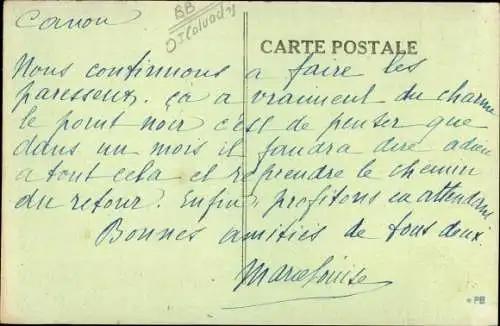 Canon
BB
CARTE POSTALE
Nous continuons a faire les
paresseux. ça a vraiment du charme
le point noir c'est de penser que
dans un mois il faudra dire adieu
a tout cela et reprendre le chemin
du retour. Enfin profitons en attendant
Bonnes amitiés de tous deux.
Marie Louise
PB